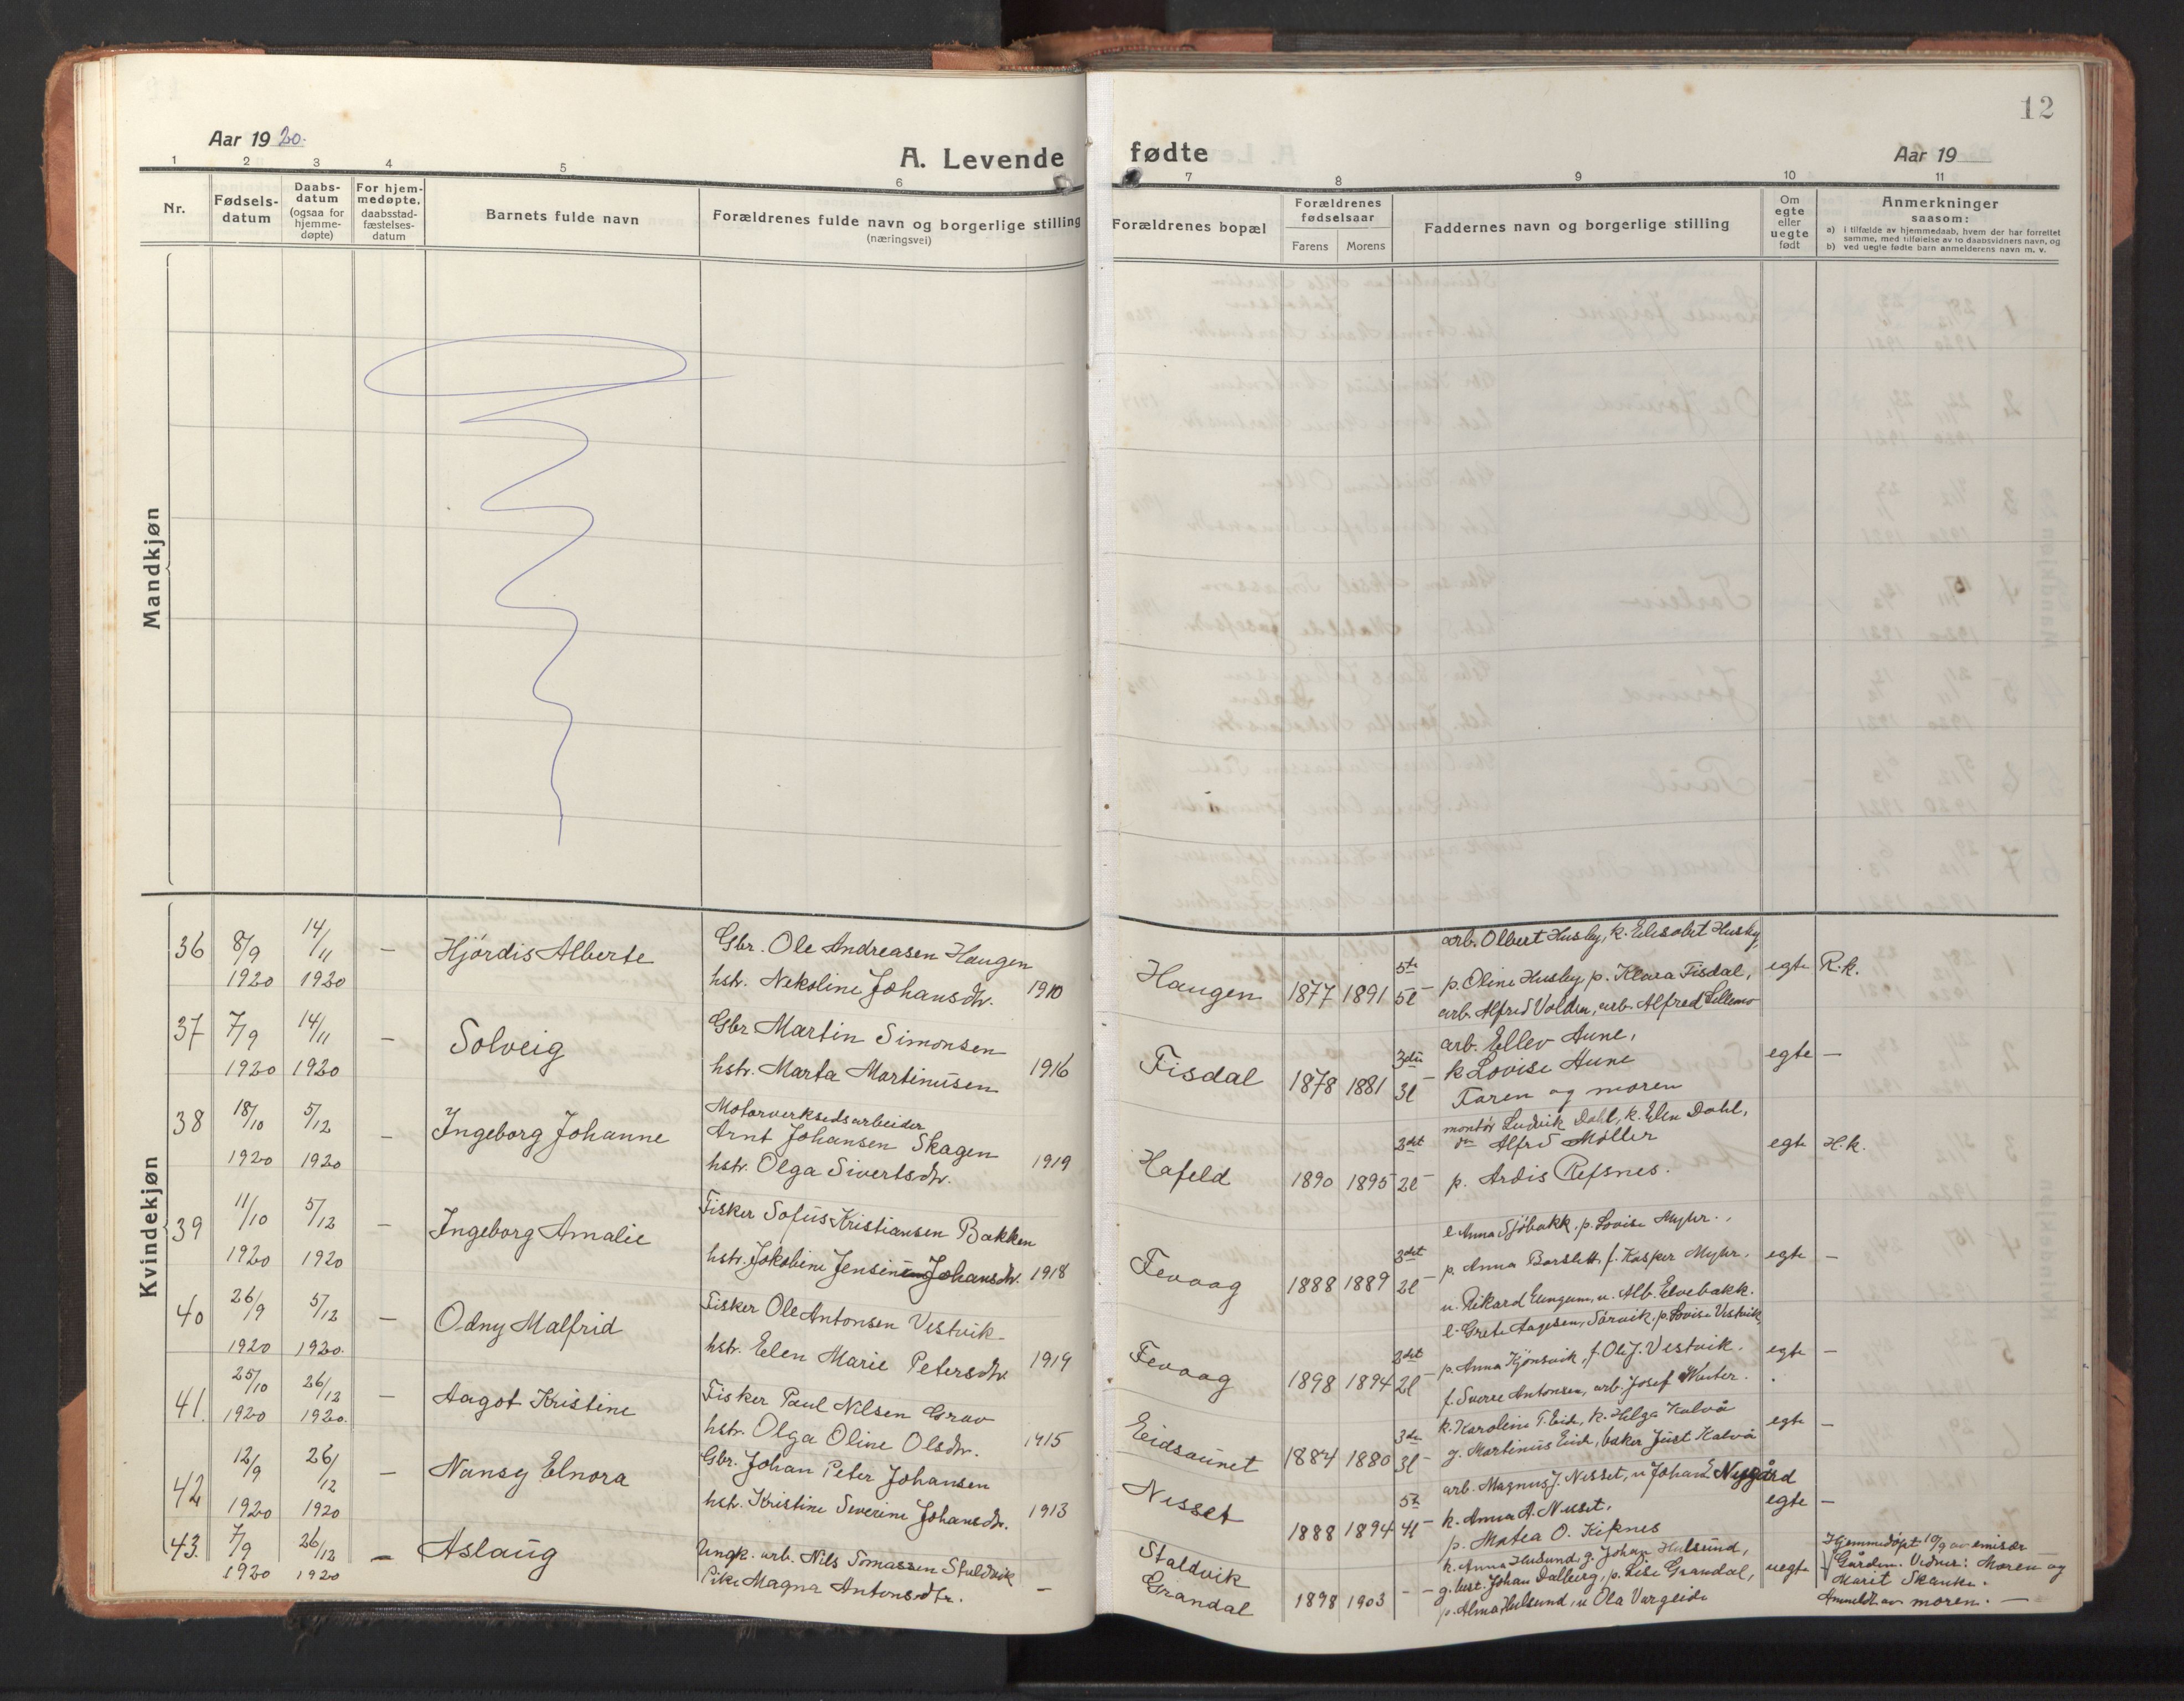 12
Aar 1920.
A. Levende fødte
Aar 19
1 2 3 4 5 6 7 8 9 10 11
Nr.
Fødsels-
datum
Daabs-
datum
(ogsaa for
hjemme-
døpte)
For hjem-
medøpte,
daabsstad-
fæstelses-
datum
Barnets fulde navn
Forældrenes fulde navn og borgerlige stilling
(næringsvei)
Forældrenes bopæl
Forældrenes
fødselsaar
Farens Morens
Faddernes navn og borgerlige stilling
Om
egte
eller
uegte
født
Anmerkninger
saasom:
a) i tilfælde av hjemmedaab, hvem der har forrettet
samme, med tilføielse av to daabsvidners navn, og
b) ved uegte fødte barn anmelderens navn m. v.
Mandkjøn
Kvindekjøn
36 8/9 1920 14/11 1920 – Hjördis Alberte
Gbr. Ole Andreasen Haugen
hstr. Nekoline Johansdtr. 1910
Haugen 1877 1891 5te 5l –
arb. Olbert Husby, k. Elisabet Husby
p. Oline Husby, p. Klara Fisdal,
arb. Alfred Volden, arb. Alfred Lillemo
egte R.k.
37 7/9 1920 14/11 1920 – Solveig
Gbr Martin Simonsen
hstr. Marta Martinusen 1916
Fisdal 1878 1881 3die 3l –
arb. Ellev Aune,
k Lovise Aune
Faren og moren
egte –
38 18/10 1920 5/12 1920 – Ingeborg Johanne
Motorverkstedsarbeider
Arnt Johansen Skagen
hstr. Olga Sivertsdtr. 1919
Hafeld 1890 1895 2det 2l –
montör Ludvik Dahl, k. Elen Dahl,
Alfred Møller
p. Ardis Refsnes.
egte H.k.
39 11/10 1920 5/12 1920 – Ingeborg Amalie
Fisker Sofus Kristiansen Bakken
hstr. Jakobine Jensine Johansdtr. 1918
Fevaag 1888 1889 2det 2l –
e Anna Sjöbakk. p. Lovise Myhr.,
p. Anna Barslett, f. Kasper Myhr.
u. Rikard Eungum, u. Alb. Elvebakk.
egte –
40 26/9 1920 5/12 1920. – Odny Malfrid
Fisker Ole Antonsen Vestvik
hstr. Elen Marie Petersdtr 1919
Fevaag 1898 1894 2det 2l –
e. Grete Aagesen, Sörvik, p. Lovise Vestvik,
p. Anna Kjönsvik, f. Ole J. Vestvik.
f. Sverre Antonsen, arb. Josef Winter.
egte –
41. 25/10 1920 26/12 1920. – Aagot Kristine
Fisker Paul Nilsen Grav
hstr. Olga Oline Olsdtr. 1915
Eidsaunet 1884 1880 3die 3l –
k. Karoline T. Eid, k. Helga Kalvå
g. Martinus Eid, baker Just Kalvå
egte –
42 12/9 1920 26/12 1920 – Nansy Elnora
Gbr. Johan Peter Johansen
hstr. Kristine Severine Johansdtr. 1913
Nesset 1888 1894 5te 4l –
arb. Magnus J. Nesset, u Johan E Nygård
k. Anna A. Nesset,
p. Matea O. Kiknes
egte –
43. 7/9 1920 26/12 1920 – Aslaug
Ungk. arb. Nils Tomassen Staldvik
Pike Magna Antonsdtr. –
Staldvik
Grandal 1898 1903 – –
k. Anna Hulsund, g. Johan Hulsund,
g. best. Johan Dalberg, p. Lise Grandal,
p. Alma Hulsund, u Ola Vargeide
uegte
Hjemmedöpt 10/9 av emisær
Gården. Vidner: Moren og
Marit Skanke.
Anmeldt av moren. –